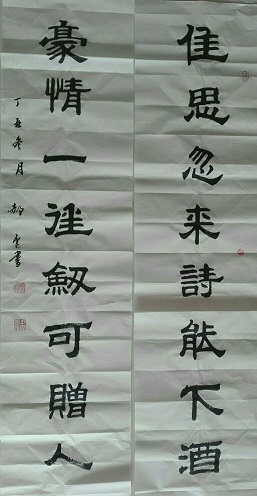 佳思忽来詩能下酒
豪情一往劔可贈人
丁丑冬月